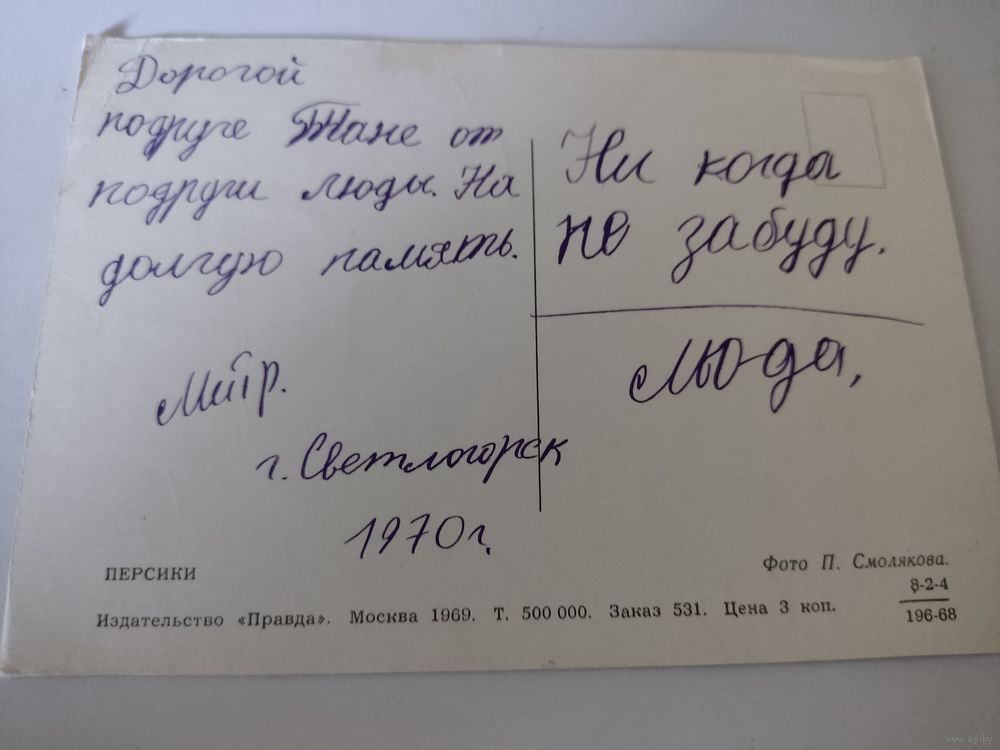 Дорогой
подруге Тане от
подруги люды. На
долгую память.
г. Светлогорск
1970 г.
Ни когда
не забуду.
Люда,
ПЕРСИКИ
Фото П. Смолякова.
Издательство «Правда». Москва 1969. Т. 500 000. Заказ 531. Цена 3 коп.
8-2-4
196-68
www.ay.by